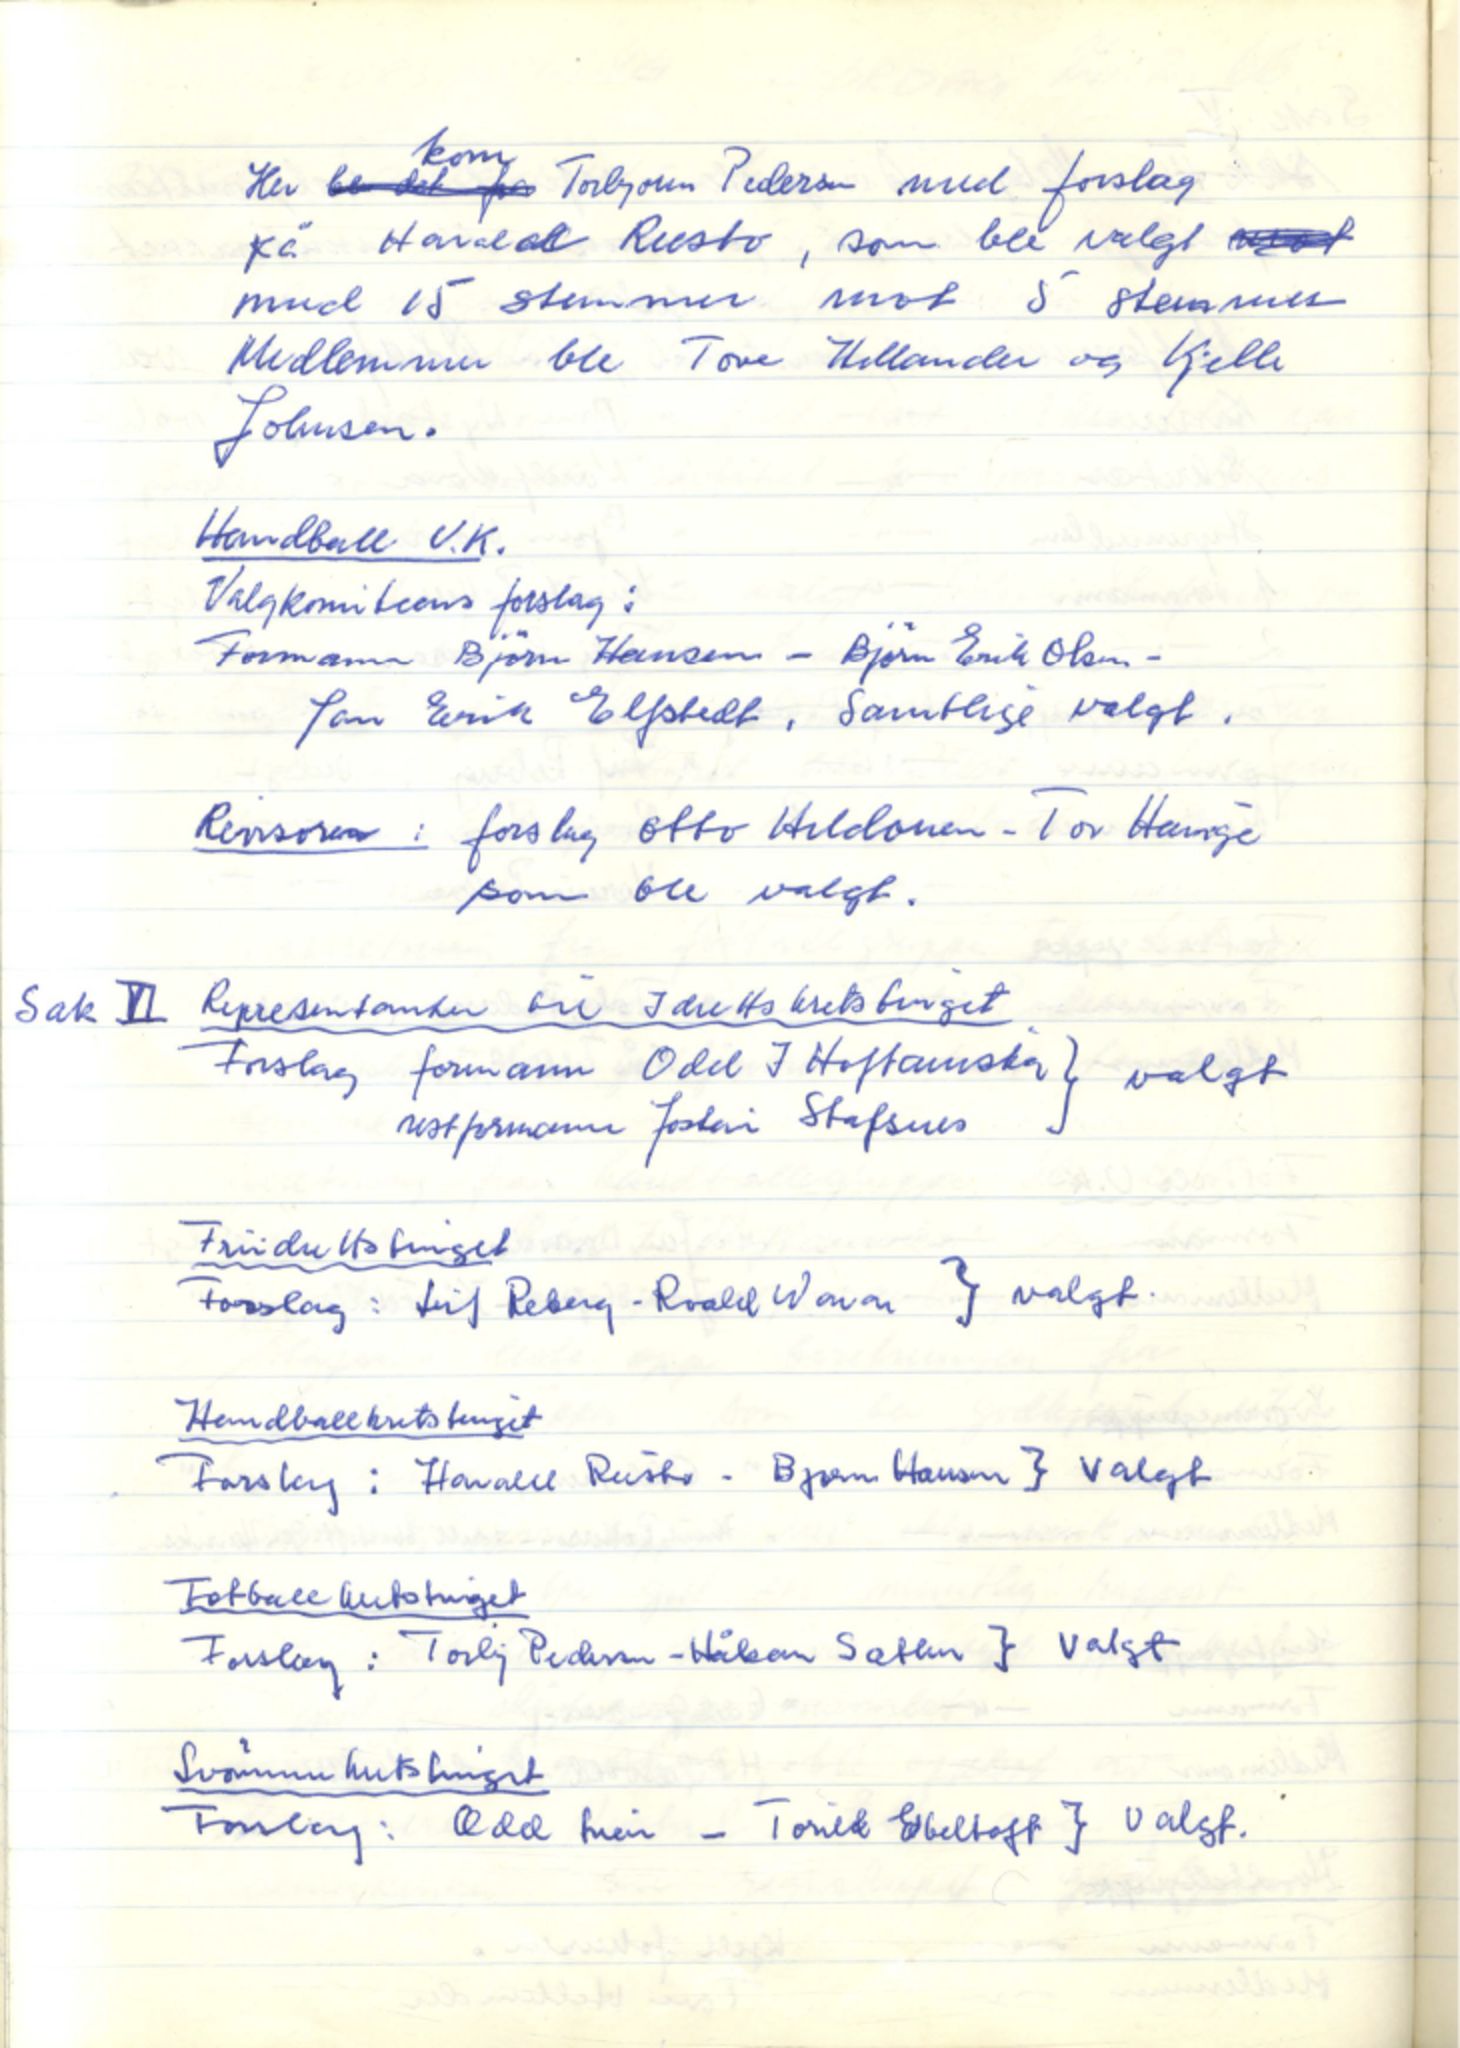 kom
Her ble det fra Torbjørn Pedersen med forslag
på Harald Rusto, som ble valgt mot
med 15 stemmer mot 5 stemmer
Medlemmer ble Tove Hellander og Kjelle
Johnsen.
Handball V.K.
Valgkomiteens forslag:
Formann Björn Hansen - Björn Erik Olsen -
Jan Erik Elfstedt, Samtlige valgt.
Revisorer: forslag Otto Hildonen - Tor Hauge
som ble valgt.
Sak VI Representanter til Idrettskretstinget
Forslag formann Odd I } valgt
nestformann Jostein Stafsnes
Friidrettstinget
Forslag: Leif Reberg - Roald Waran } valgt.
Handballkretstinget
Forslag: Harald Rusto - Bjørn Hansen } Valgt
Fotballkretstinget
Forslag: Torbj Pedersen - Håkan Sæther } Valgt
Svömmekretstinget
Forslag: Odd - Torild Ebeltoft } Valgt.